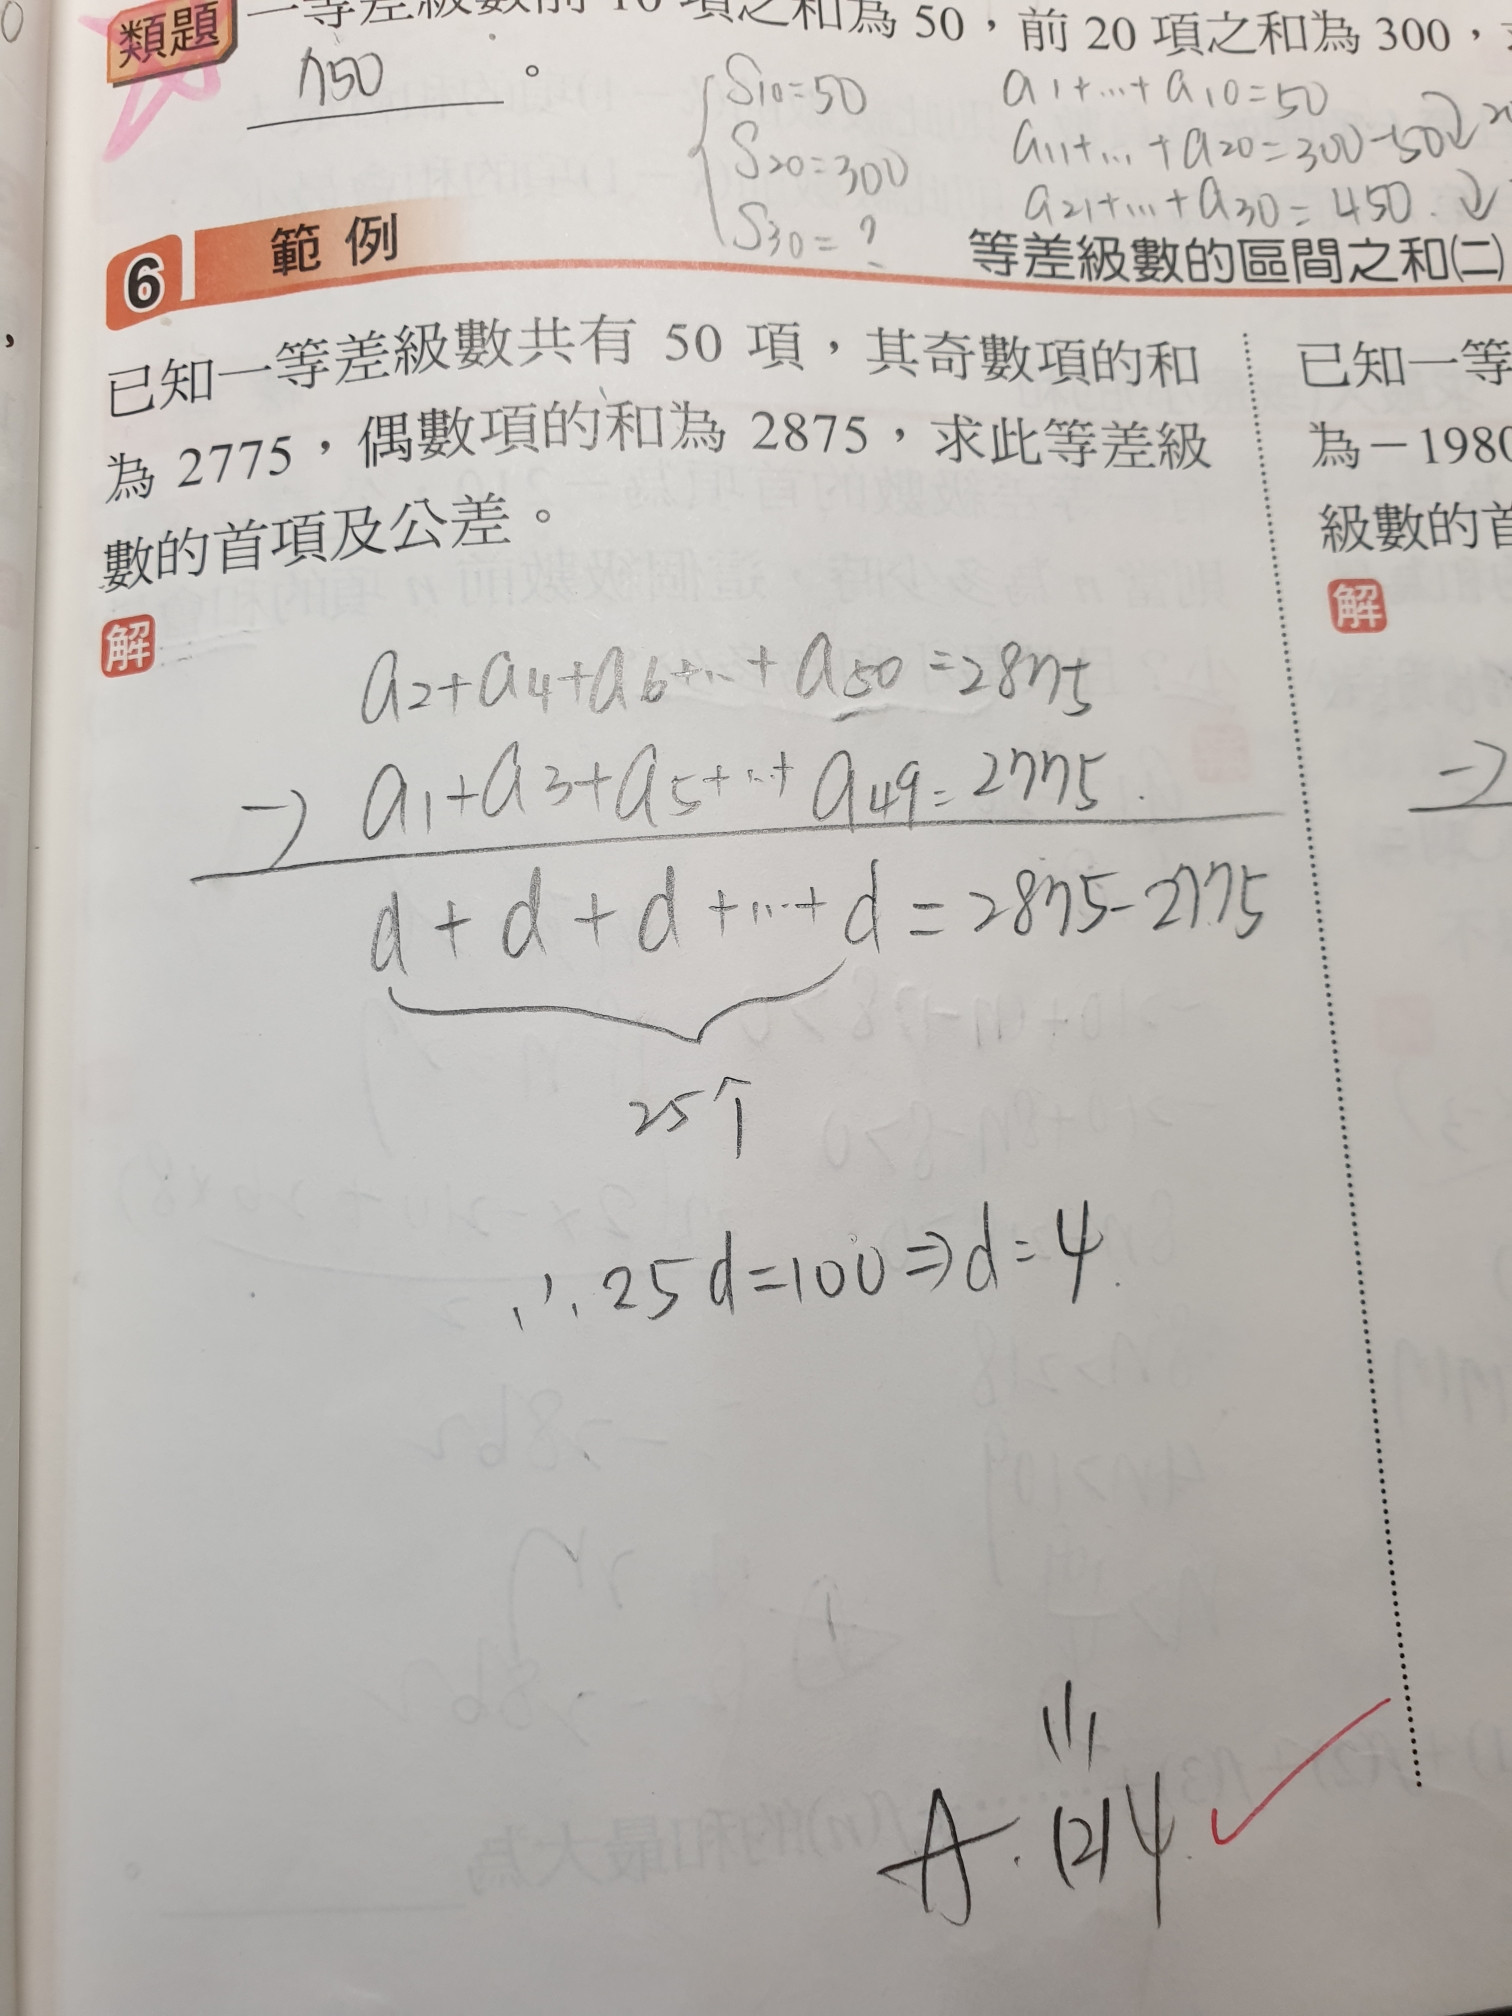 類題 一等差級數前 10 項之和為 50，前 20 項之和為 300，
750 。
S10=50
S20=300
S30=?
a1+...+a10=50
a11+...+a20=300-50
a21+...+a30=450.
6 範例 等差級數的區間之和(二)
已知一等差級數共有 50 項，其奇數項的和
為 2775，偶數項的和為 2875，求此等差級
數的首項及公差。
解
a2+a4+a6+...+a50=2875
-) a1+a3+a5+...+a49=2775.
d+d+d+...+d=2875-2775
25个
∴25d=100⇒d=4.
11
A. (2) 4.
已知一等
為－1980
級數的首
解
-)